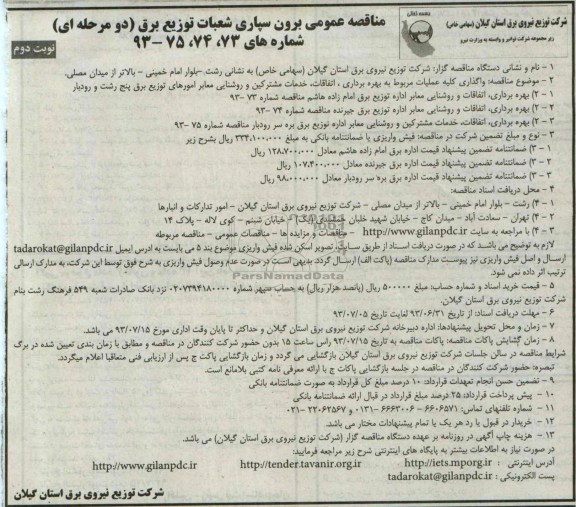 شرکت توزیع نیروی برق استان گیلان (سهامی خاص)
زیر مجموعه شرکت توانیر و وابسته به وزارت نیرو
مناقصه عمومی برون سپاری شعبات توزیع برق (دو مرحله ای)
شماره های ۷۳، ۷۴، ۷۵ -۹۳
نوبت دوم
۱ - نام و نشانی دستگاه مناقصه گزار: شرکت توزیع نیروی برق استان گیلان (سهامی خاص) به نشانی رشت -بلوار امام خمینی - بالاتر از میدان مصلی.
۲ - موضوع مناقصه: واگذاری کلیه عملیات مربوط به بهره برداری ، اتفاقات، خدمات مشترکین و روشنایی معابر امورهای توزیع برق پنج رشت و رودبار
۱ -۲) بهره برداری، اتفاقات و روشنایی معابر اداره توزیع برق امام زاده هاشم مناقصه شماره ۷۳ -۹۳
۲ -۲) بهره برداری، اتفاقات و روشنایی معابر اداره توزیع برق جیرنده مناقصه شماره ۷۴ -۹۳
۳ -۲) بهره برداری، اتفاقات، خدمات مشترکین و روشنایی معابر اداره توزیع برق بره سر رودبار مناقصه شماره ۷۵ -۹۳
۳ - نوع و مبلغ تضمین شرکت در مناقصه: فیش واریزی یا ضمانتنامه بانکی به مبلغ ۳۳۴,۱۰۰,۰۰۰ ریال بشرح زیر
۱ -۳) ضمانتنامه تضمین پیشنهاد قیمت اداره برق امام زاده هاشم معادل ۱۲۸,۷۰۰,۰۰۰ ریال
۲ -۳) ضمانتنامه تضمین پیشنهاد قیمت اداره برق جیرنده معادل ۱۰۷,۴۰۰,۰۰۰ ریال
۳ -۳) ضمانتنامه تضمین پیشنهاد قیمت اداره برق بره سر رودبار معادل ۹۸,۰۰۰,۰۰۰ ریال
۴ - محل دریافت اسناد مناقصه:
۱ -۴) رشت - بلوار امام خمینی - بالاتر از میدان مصلی - شرکت توزیع نیروی برق استان گیلان - امور تدارکات و انبارها
۲ -۴) تهران - سعادت آباد - میدان کاج - خیابان شهید خلبان - خیابان شبنم - کوی لاله - پلاک ۱۴
۳ -۴) با مراجعه به سایت http://www.gilanpdc.ir - مناقصات و مزایده ها - مناقصات عمومی - مناقصه مربوطه
لازم به توضیح می باشد که در صورت دریافت اسناد از طریق سایت، تصویر اسکن شده فیش واریزی موضوع بند ۵ می بایست به آدرس ایمیل tadarokat@gilanpdc.ir
ارسال و اصل فیش واریزی نیز پیوست مدارک مناقصه (پاکت الف) ارسال گردد. بدیهی است در صورت عدم وصول فیش واریزی به شرح فوق توسط این شرکت، به مدارک ارسالی
ترتیب اثر داده نمی شود.
۵ - قیمت خرید اسناد و شماره حساب: مبلغ ۵۰۰۰۰۰ ریال (پانصد هزار ریال) به حساب سپهر شماره ۰۲۰۷۳۹۴۱۸۰۰۰۰ نزد بانک صادرات شعبه ۵۴۹ فرهنگ رشت بنام
شرکت توزیع نیروی برق استان گیلان.
۶ - مهلت دریافت اسناد: از تاریخ ۹۳/۰۶/۳۱ لغایت تاریخ ۹۳/۰۷/۰۵
۷ - زمان و محل تحویل پیشنهادها: اداره دبیرخانه شرکت توزیع نیروی برق استان گیلان و حداکثر تا پایان وقت اداری مورخ ۹۳/۰۷/۱۵ می باشد.
۸ - زمان گشایش پاکات مناقصه: پاکات مناقصه به تاریخ ۹۳/۰۷/۱۵ راس ساعت ۱۵ بدون حضور شرکت کنندگان در مناقصه و مطابق با زمان بندی تعیین شده در برگ
شرایط مناقصه در سالن جلسات شرکت توزیع نیروی برق استان گیلان بازگشایی می گردد و زمان بازگشایی پاکت ج پس از ارزیابی فنی متعاقبا اعلام میگردد.
تبصره: حضور شرکت کنندگان در مناقصه در جلسه بازگشایی پاکات ج با ارائه معرفی نامه کتبی بلامانع است.
۹ - تضمین حسن انجام تعهدات قرارداد: ۱۰ درصد مبلغ کل قرارداد به صورت ضمانتنامه بانکی
۱۰ - پیش پرداخت قرارداد: ۲۵ درصد مبلغ قرارداد در قبال ارائه ضمانتنامه بانکی
۱۱ - شماره تلفنهای تماس: ۶۶۰۶۵۷۱ - ۶۶۶۳۰۰۶ -۰۱۳۱ و ۲۲۰۶۳۵۶۷ -۰۲۱
۱۲ - خریدار در قبول یا رد هر یک یا تمام پیشنهادات مختار می باشد.
۱۳ - هزینه چاپ آگهی در روزنامه بر عهده دستگاه مناقصه گزار (شرکت توزیع نیروی برق استان گیلان) می باشد.
در صورت نیاز به اطلاعات بیشتر به پایگاه های اینترنتی شرح زیر مراجعه فرمایید:
آدرس اینترنتی : http://iets.mporg.ir http://tender.tavanir.org.ir http://www.gilanpdc.ir
پست الکترونیکی : tadarokat@gilanpdc.ir
شرکت توزیع نیروی برق استان گیلان
ParsNamadData